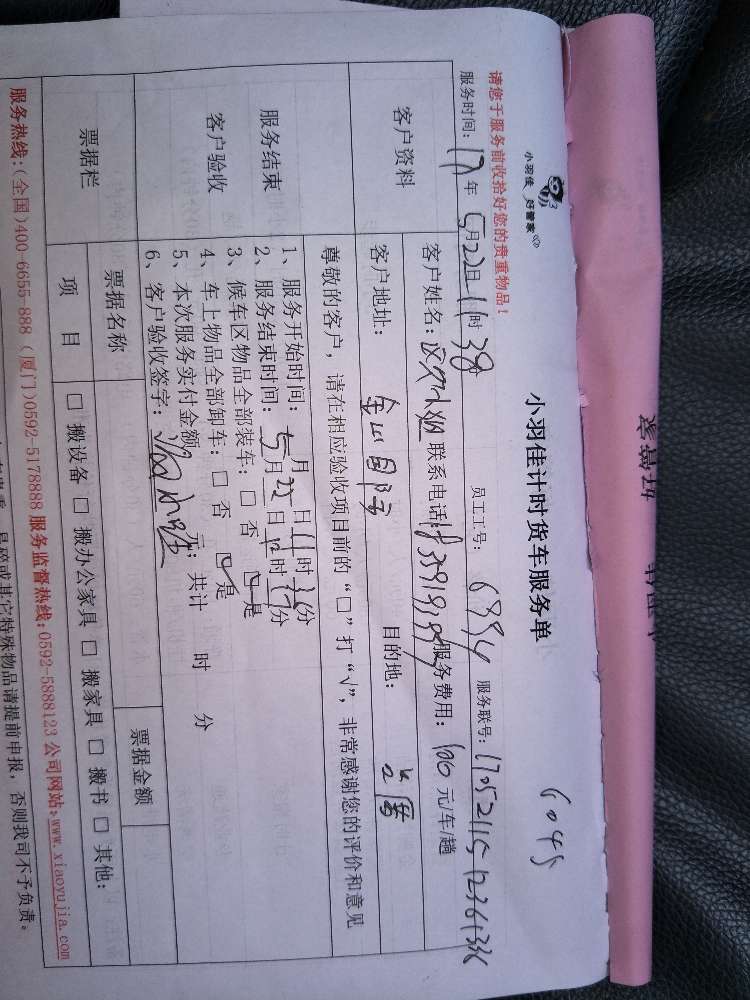 小羽佳 好管家
6045
小羽佳计时货车服务单
请您于服务前收拾好您的贵重物品！
服务时间：17年5月22日11时38 员工工号：6994 服务联号：
客户资料
客户姓名： 联系电话： 服务费用：100元/车/趟
客户地址：金山国际 目的地：
尊敬的客户，请在相应验收项目前的“□”打“√”，非常感谢您的评价和意见
服务结束
客户验收
1、服务开始时间：月 日11时 分
2、服务结束时间：5月22日12时 分
3、候车区物品全部装车：□否 □是
4、车上物品全部卸车：□否 □是
5、本次服务实付金额 元；共计 时 分
6、客户验收签字：
票据栏
票据名称 票据金额
项 目 □搬设备 □搬办公家具 □搬家具 □搬书 □其他：
服务热线：（全国）400-6655-888 （厦门）0592-5178888 服务监督热线：0592-5888123 公司网站：www.xiaoyujia.com
易碎或其它特殊物品请提前申报，否则我司不予负责。